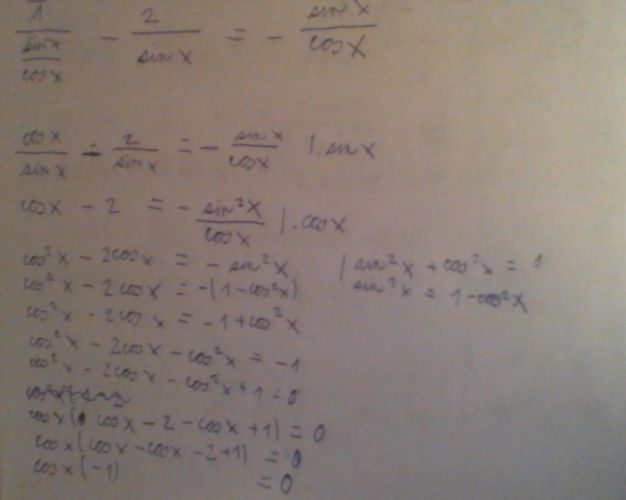 1/(sin x/cos x) - 2/sin x = - sin x/cos x
cos x/sin x - 2/sin x = - sin x/cos x |. sin x
cos x - 2 = - sin²x/cos x |. cos x
cos²x - 2cos x = - sin²x | sin²x + cos²x = 1
cos²x - 2cos x = -(1-cos²x) sin²x = 1-cos²x
cos²x - 2cos x = -1+cos²x
cos²x - 2cos x - cos²x = -1
cos²x - 2cos x - cos²x + 1 = 0
cos x( cos x - 2 - cos x + 1) = 0
cos x(cos x - cos x - 2+1) = 0
cos x(-1) = 0